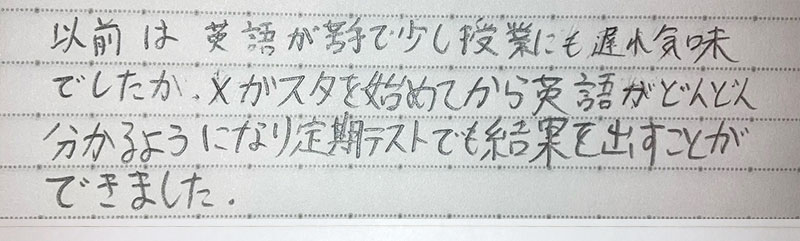 以前は英語が苦手で少し授業にも遅れ気味
でしたか、メガスタを始めてから英語がどんどん
分かるようになり定期テストでも結果を出すことが
できました.